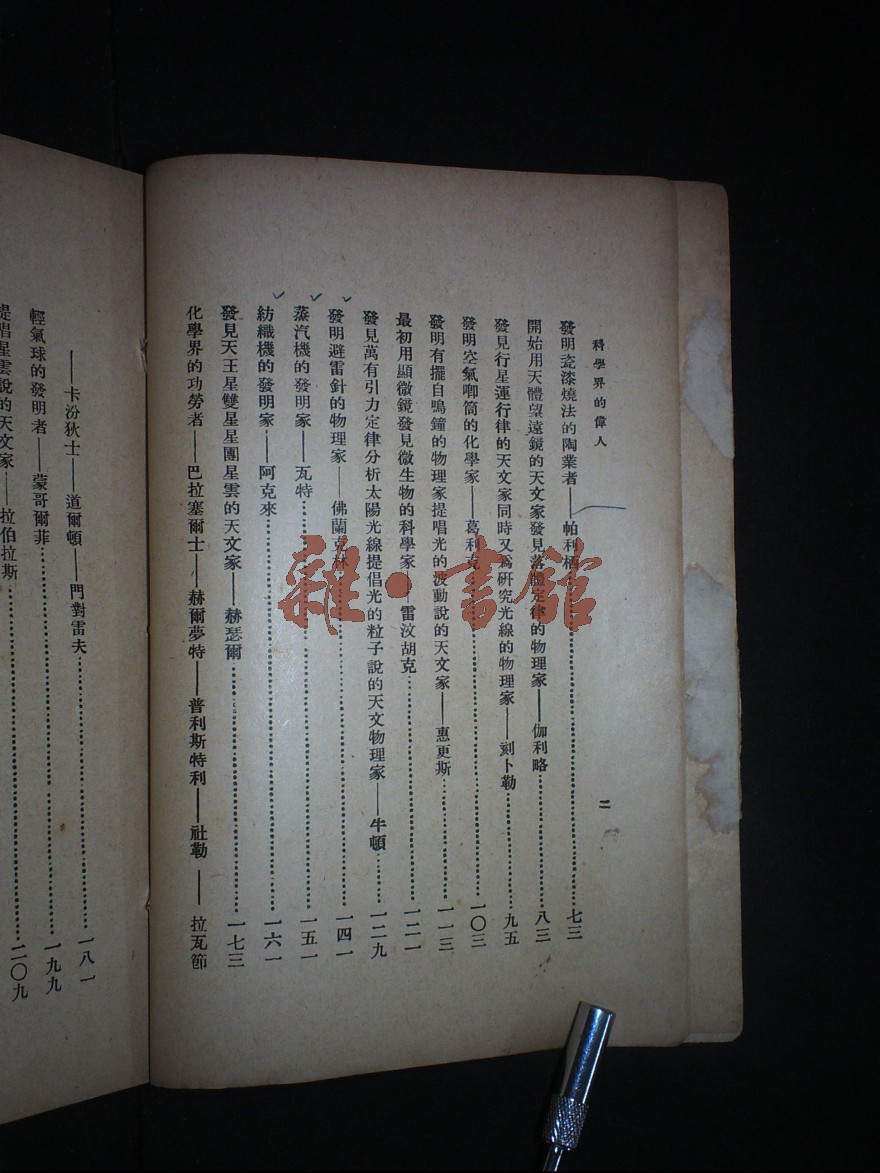 科學界的偉人
二
發明瓷漆燒法的陶業者——帕利栖……七三
開始用天體望遠鏡的天文家發見落體定律的物理家——伽利略……八三
發見行星運行律的天文家同時又爲研究光線的物理家——刻卜勒……九五
發明空氣唧筒的化學家——葛利克……一〇三
發明有擺自鳴鐘的物理家提唱光的波動說的天文家——惠更斯……一一三
最初用顯微鏡發見微生物的科學家——雷汶胡克……一二一
發見萬有引力定律分析太陽光線提倡光的粒子說的天文物理家——牛頓……一二九
發明避雷針的物理家——佛蘭克林……一四一
蒸汽機的發明家——瓦特……一五一
紡織機的發明家——阿克來……一六一
發見天王星雙星星團星雲的天文家——赫瑟爾……一七三
化學界的功勞者——巴拉塞爾士——赫爾夢特——普利斯特利——社勒——拉瓦節
——卡汾狄士——道爾頓——門對雷夫……一八一
輕氣球的發明者——蒙哥爾菲……一九九
提唱星雲說的天文家——拉伯拉斯……二〇九
雜·書館